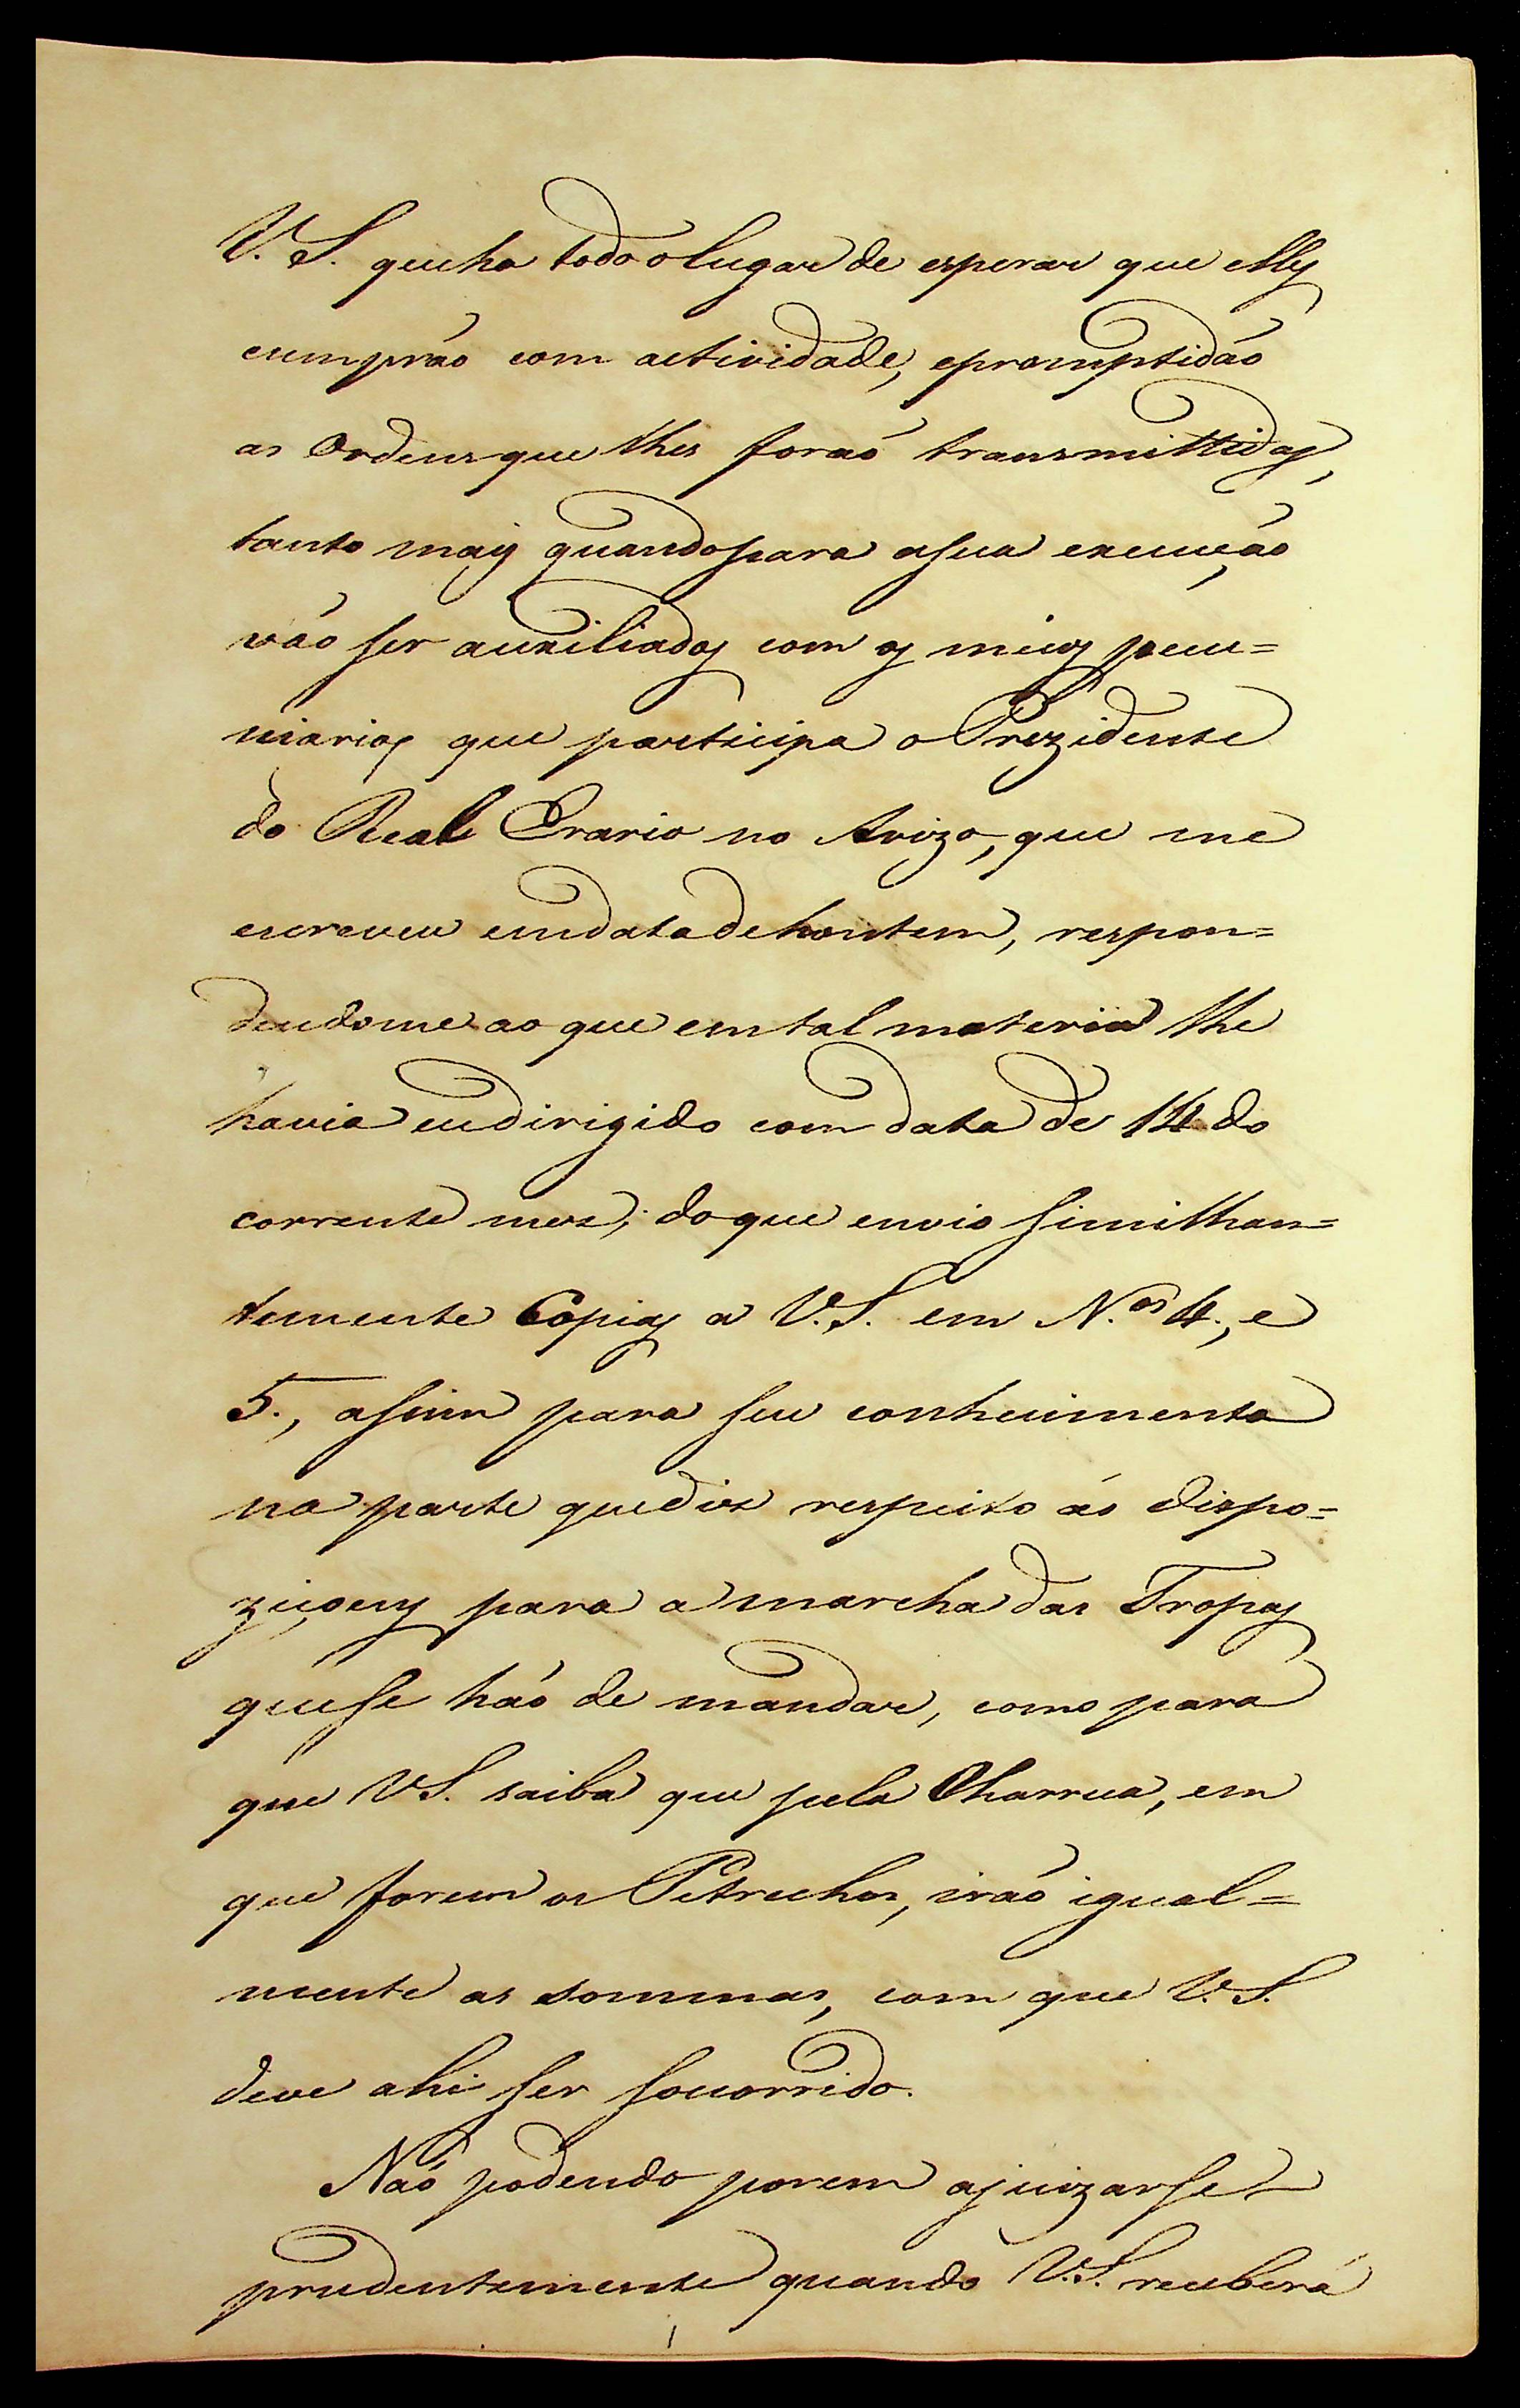 V. S. que ha todo o lugar de esperar que elles
cumpráo com actividade, e promptidáo
as Ordens que lhes foraó transmittidas,
tanto mais quando para a sua execução
váo ser auxiliados com os meios pecu=
niarios que participa o Prezidente
do Real Erario no Avizo, que me
escreveu em data de hontem, respon=
dendome ao que em tal materia lhe
havia eu dirigido com data de 14 do
corrente mez; do que envio similhan=
temente Copias a V. S. em N.os 4., e
5., assim para seu conhecimento
na parte que diz respeito ás dispo=
ziçoens para a marcha das Tropas
que se háo de mandar, como para
que V. S. saiba que pela Charrua, em
que forem os Petrechos, iráo igual=
mente as sommas, com que V. S.
deve ahi ser soccorrido.
Naó podendo porem ajuizarse
prudentemente quando V. S. receberá